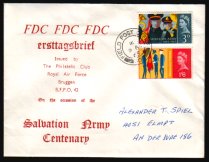 FDC FDC FDC
ersttagsbrief
Issued by
The Philatelic Club
Royal Air Force
Bruggen
B.F.P.O. 42
On the occasion of the
Salvation Army
Centenary
FIELD POST
3D
1/6
ALEXANDER T. SPIEL
4051 ELMPT
AN DER WAE 186